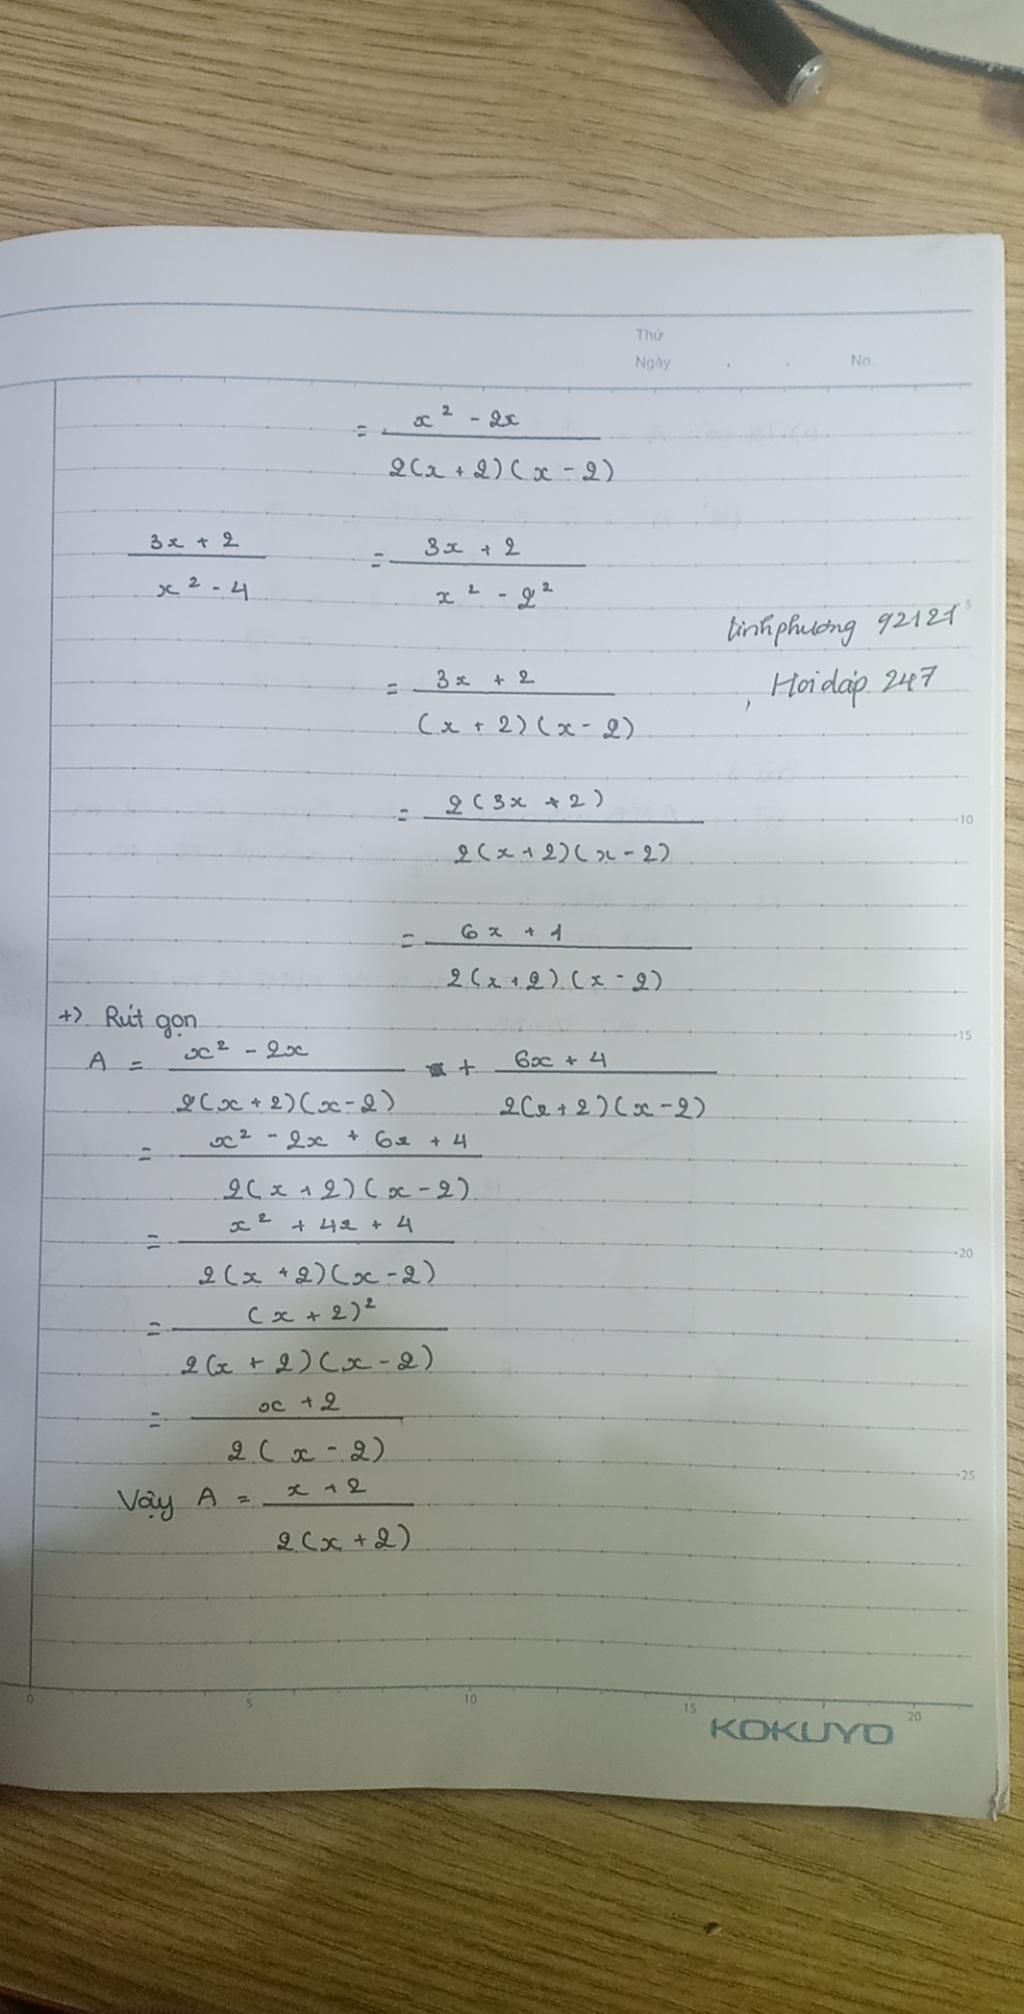 Thứ
Ngày . . No.
= x² - 2x / 2(x + 2)(x - 2)
3x + 2 / x² - 4 = 3x + 2 / x² - 2²
5
linhphương 92121
= 3x + 2 / (x + 2)(x - 2)
, Hoidap 247
= 2(3x + 2) / 2(x + 2)(x - 2)
10
= 6x + 1 / 2(x + 2)(x - 2)
+) Rút gọn
15
A = x² - 2x / 2(x + 2)(x - 2) + 6x + 4 / 2(x + 2)(x - 2)
= x² - 2x + 6x + 4 / 2(x + 2)(x - 2)
= x² + 4x + 4 / 2(x + 2)(x - 2)
20
= (x + 2)² / 2(x + 2)(x - 2)
= x + 2 / 2(x - 2)
25
Vậy A = x + 2 / 2(x + 2)
0 5 10 15 20
KOKUYO